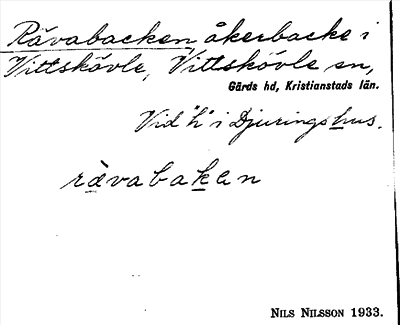 Rävabacken, åkerbacke i
Vittskövle, Vittskövle sn,
Gärds hd, Kristianstads län.
Vid "h" i Djuringshus.
rävabaken
NILS NILSSON 1933.